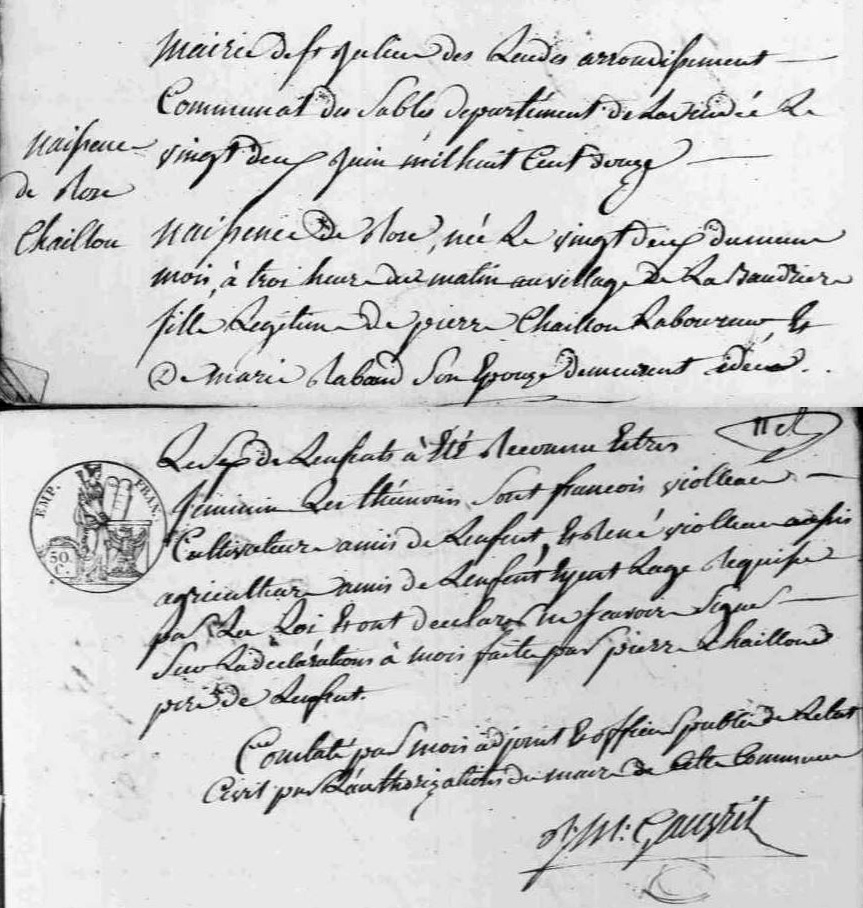 Mairie de st Julien des Landes arrondissement
Communal des Sables département de la vendée Le
vingt deux Juin mil huit Cent douze
Naissence
de Rose
Chaillou
Naissence de Rose, née Le vingt deux du meme
mois, à troi heure du matin au village de La Baudriere
fille Legitime de pierre Chaillou Laboureur Et
De marie Rabaud Son Epouze demeurent
Le Sex de Lenfents à Eté Reconnu Estres
féminin Les thémoins Sont francois violleau
Cultivateur amis de Lenfent, Et René violleau aussis
agriculteur amis de Lenfent Eyent Lage Requise
pas La Loi Et ont declares ne scavoire Signes
Sur La déclérations à mois faite pas pierre Chailloud
pere de Lenfent.
Constaté pas mois adjoint Et officier publice de Letat
Civil pas L'authorizations du maire de Cette Commune
Gauvrit
EMP. FRAN.
50 C.